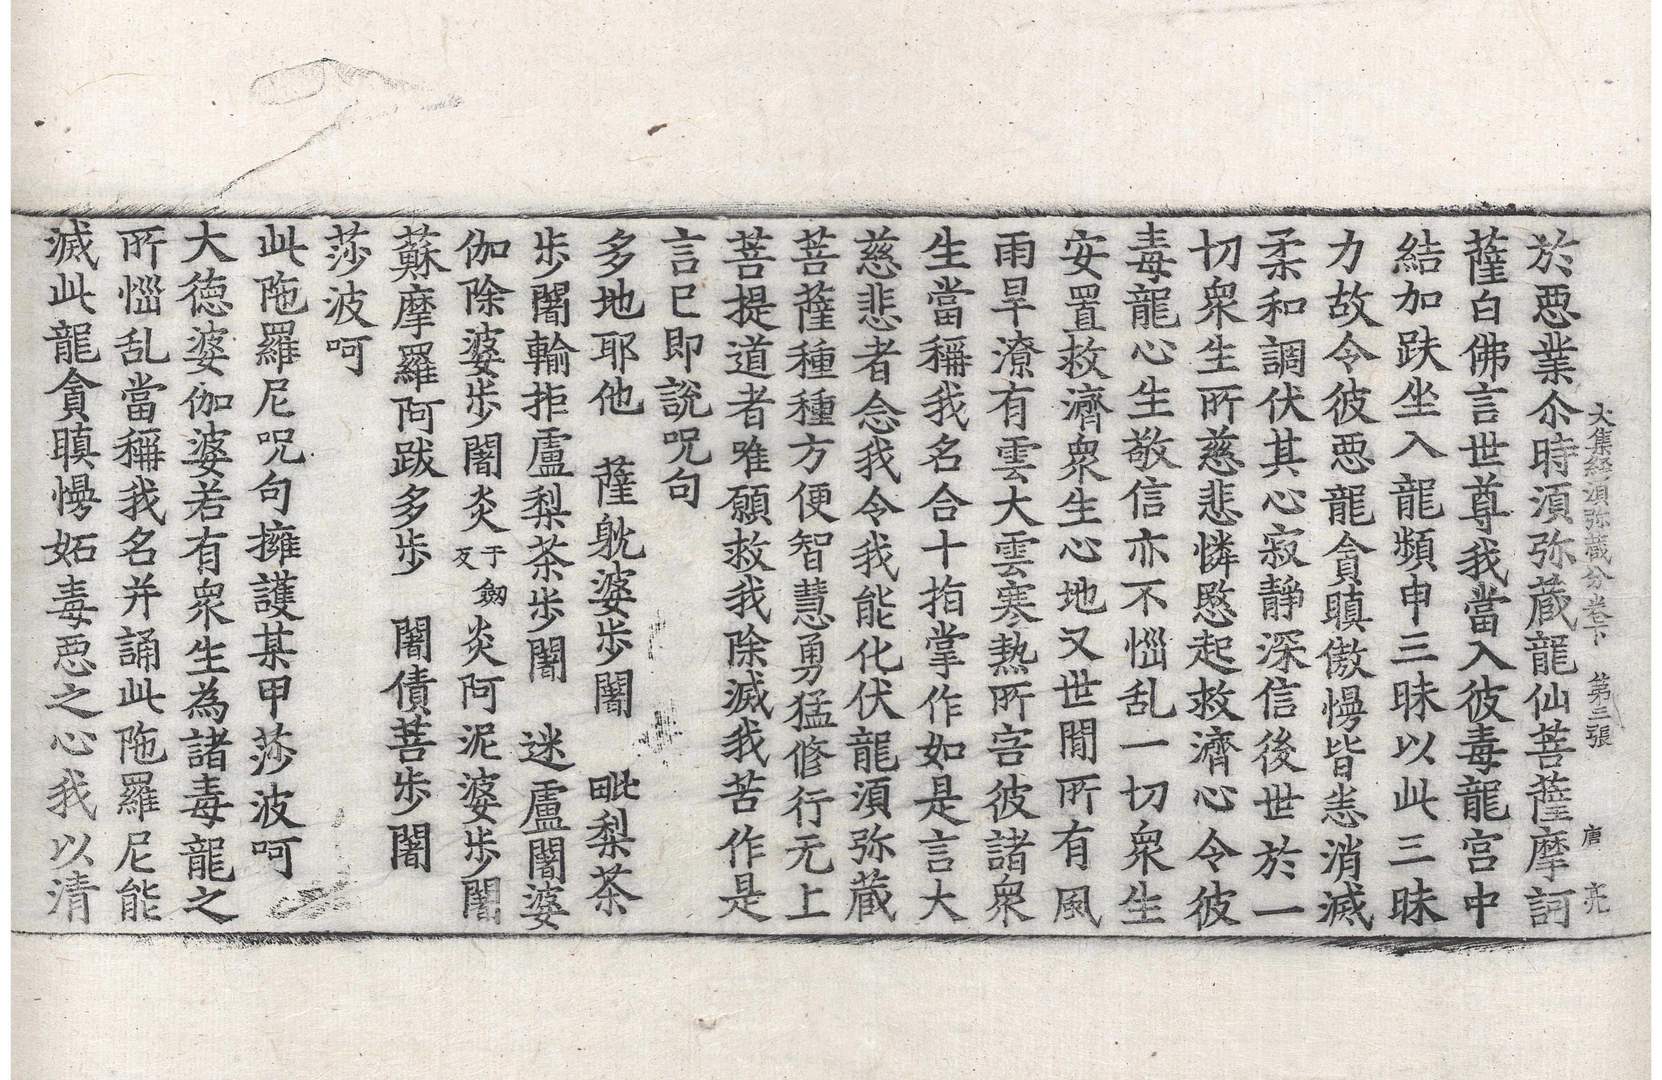 大集経湏弥蔵分卷下　第三張　唐　亮
於惡業尒時湏弥蔵龍仙菩薩摩訶
薩白佛言世尊我當入彼毒龍宫中
結加趺坐入龍頻申三昧以此三昧
力故令彼惡龍貪瞋傲慢皆悉消滅
柔和調伏其心寂靜深信後世於一
切衆生所慈悲憐愍起救濟心令彼
毒龍心生敬信亦不惱乱一切衆生
安置救濟衆生心地又世間所有風
雨旱潦有雲大雲寒熱所害彼諸衆
生當稱我名合十指掌作如是言大
慈悲者念我令我能化伏龍湏弥蔵
菩薩種種方便智慧勇猛修行无上
菩提道者唯願救我除滅我苦作是
言已即說呪句
多地耶他　薩躭婆步闍　毗梨荼
步闍輸拒盧梨荼步闍　迷盧闍婆
伽除婆步闍炎于劒反炎阿泥婆步闍
蘇摩羅阿跋多步　闍債菩步闍
莎波呵
此陁羅尼呪句擁護某甲莎波呵
大德婆伽婆若有衆生為諸毒龍之
所惱乱當稱我名并誦此陁羅尼能
滅此龍貪瞋慢妬毒惡之心我以清